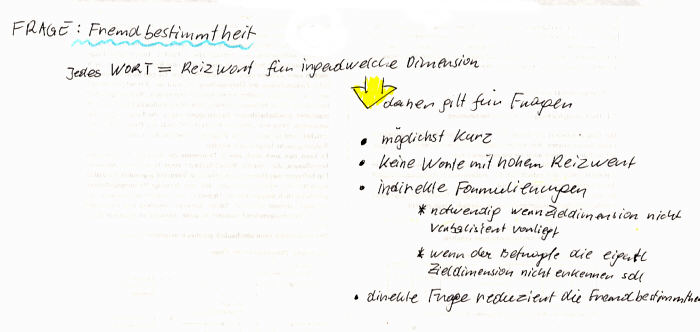 FRAGE: Fremdbestimmtheit
Jedes WORT = Reizwort für irgendwelche Dimension
daher gilt für Fragen
• möglichst kurz
• keine Worte mit hohem Reizwert
• indirekte Formulierungen
* notwendig wenn Zieldimension nicht
verbalisiert vorliegt
* wenn der Befragte die eigentl
Zieldimension nicht erkennen soll
• direkte Frage reduziert die Fremdbestimmthe